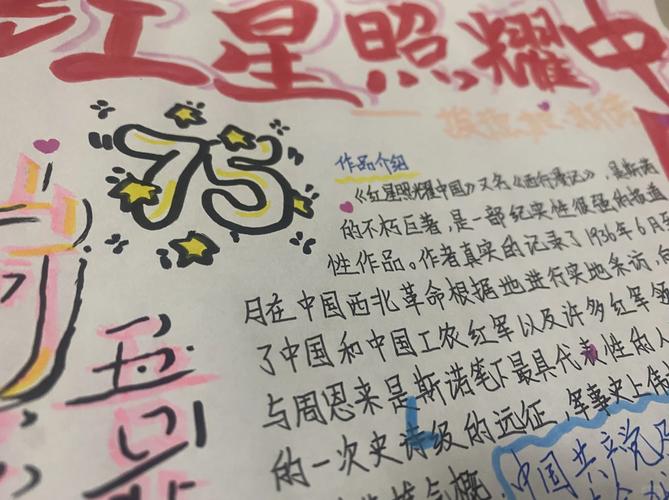 红星照耀中
75
作品介绍
《红星照耀中国》又名《西行漫记》,是斯诺
的不朽巨著,是一部纪实性很强的报道
性作品。作者真实的记录了1936年6月
月在中国西北革命根据地进行实地采访,向
了中国和中国工农红军以及许多红军领
与周恩来是斯诺笔下最具代表性的人
的一次史诗级的远征,军事史上伟
中国共产党